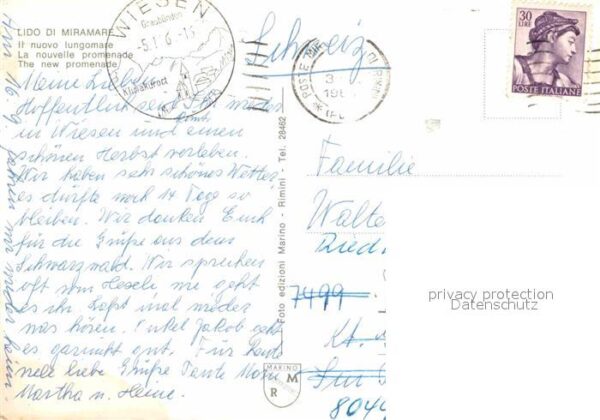 LIDO DI MIRAMARE
Il nuovo lungomare
La nouvelle promenade
The new promenade
WIESEN
Graubünden
Klimakurort
30
LIRE
POSTE ITALIANE
Schweiz
Meine Lieben
Hoffentlich seid Ihr wieder
in Wiesen und einen
schönen Herbst verleben.
Wir haben sehr schönes Wetter,
es dürfte noch 14 Tag so
bleiben. Wir danken Euch
für die Grüße aus dem
Schwarzwald. Wir sprechen
oft vom Heseli wie geht
es ihr. Laßt mal wieder
was hören. Onkel Jakob geht
es garnicht gut. Für heute
viele liebe Grüße Tante
Martha u. Heine.
Am 16.9. fahren wir wieder heim.
Foto edizioni Marino - Rimini - Tel. 28462
MARINO
R M
Familie
Walte
Ried
7499
Kt.
804
privacy protection
Datenschutz